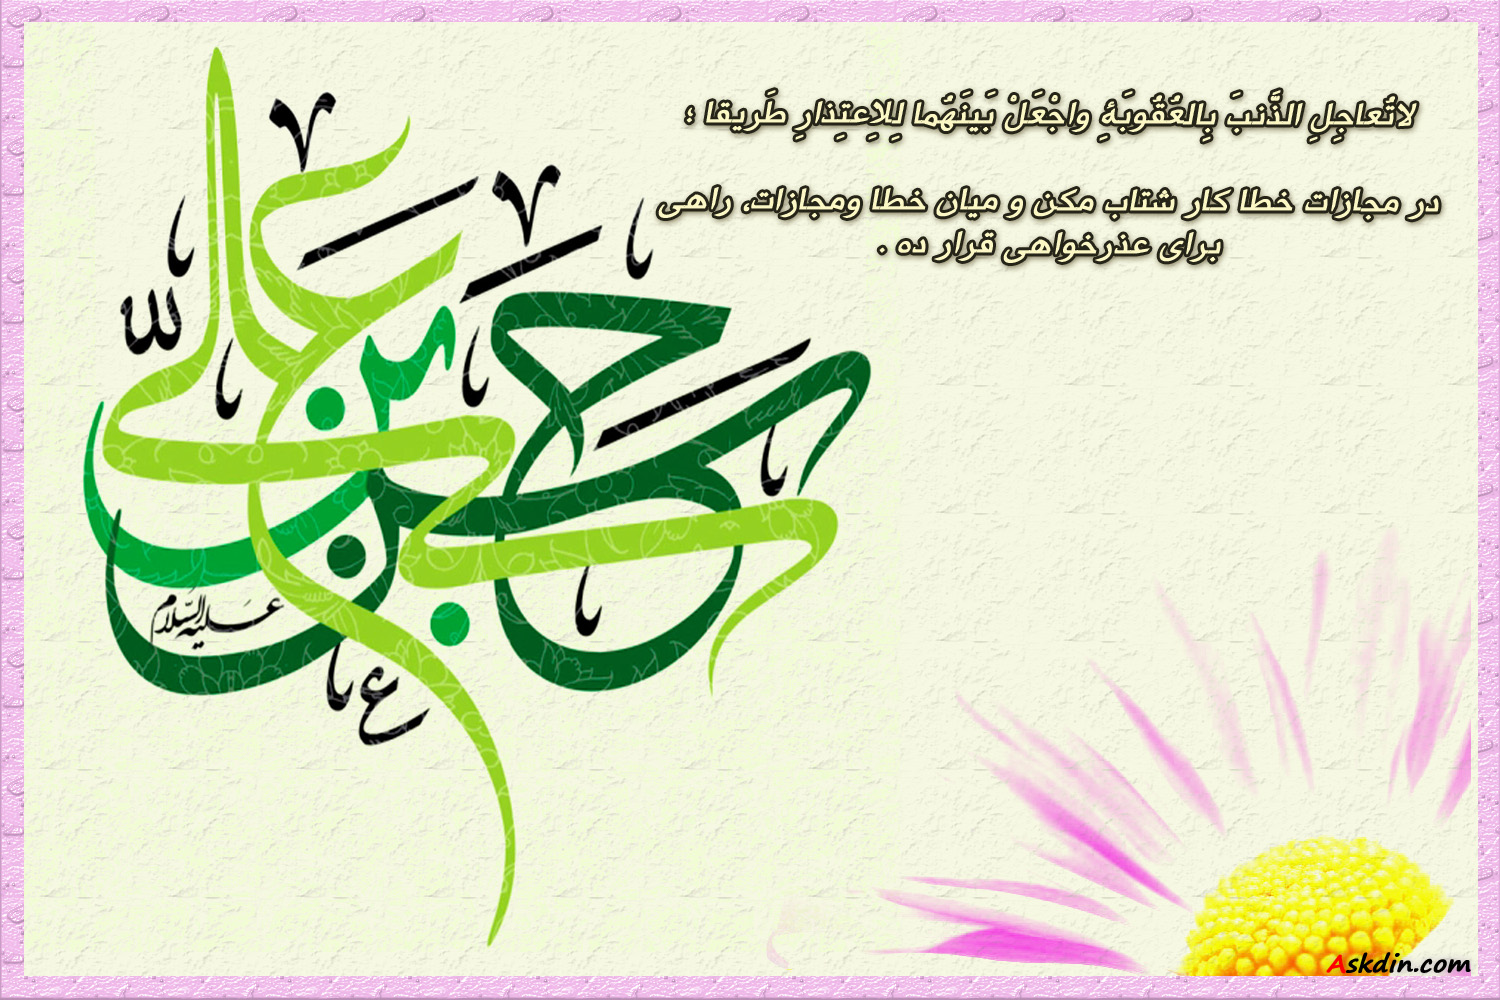 لاتُعاجِلِ الذَّنبَ بِالعُقُوبَةِ واجْعَلْ بَينَهُما لِلاِعتِذارِ طَريقا ؛
در مجازات خطا کار شتاب مکن و میان خطا ومجازات، راهی
برای عذرخواهی قرار ده .
حسن بن علی
علیه السلام
Askdin.com